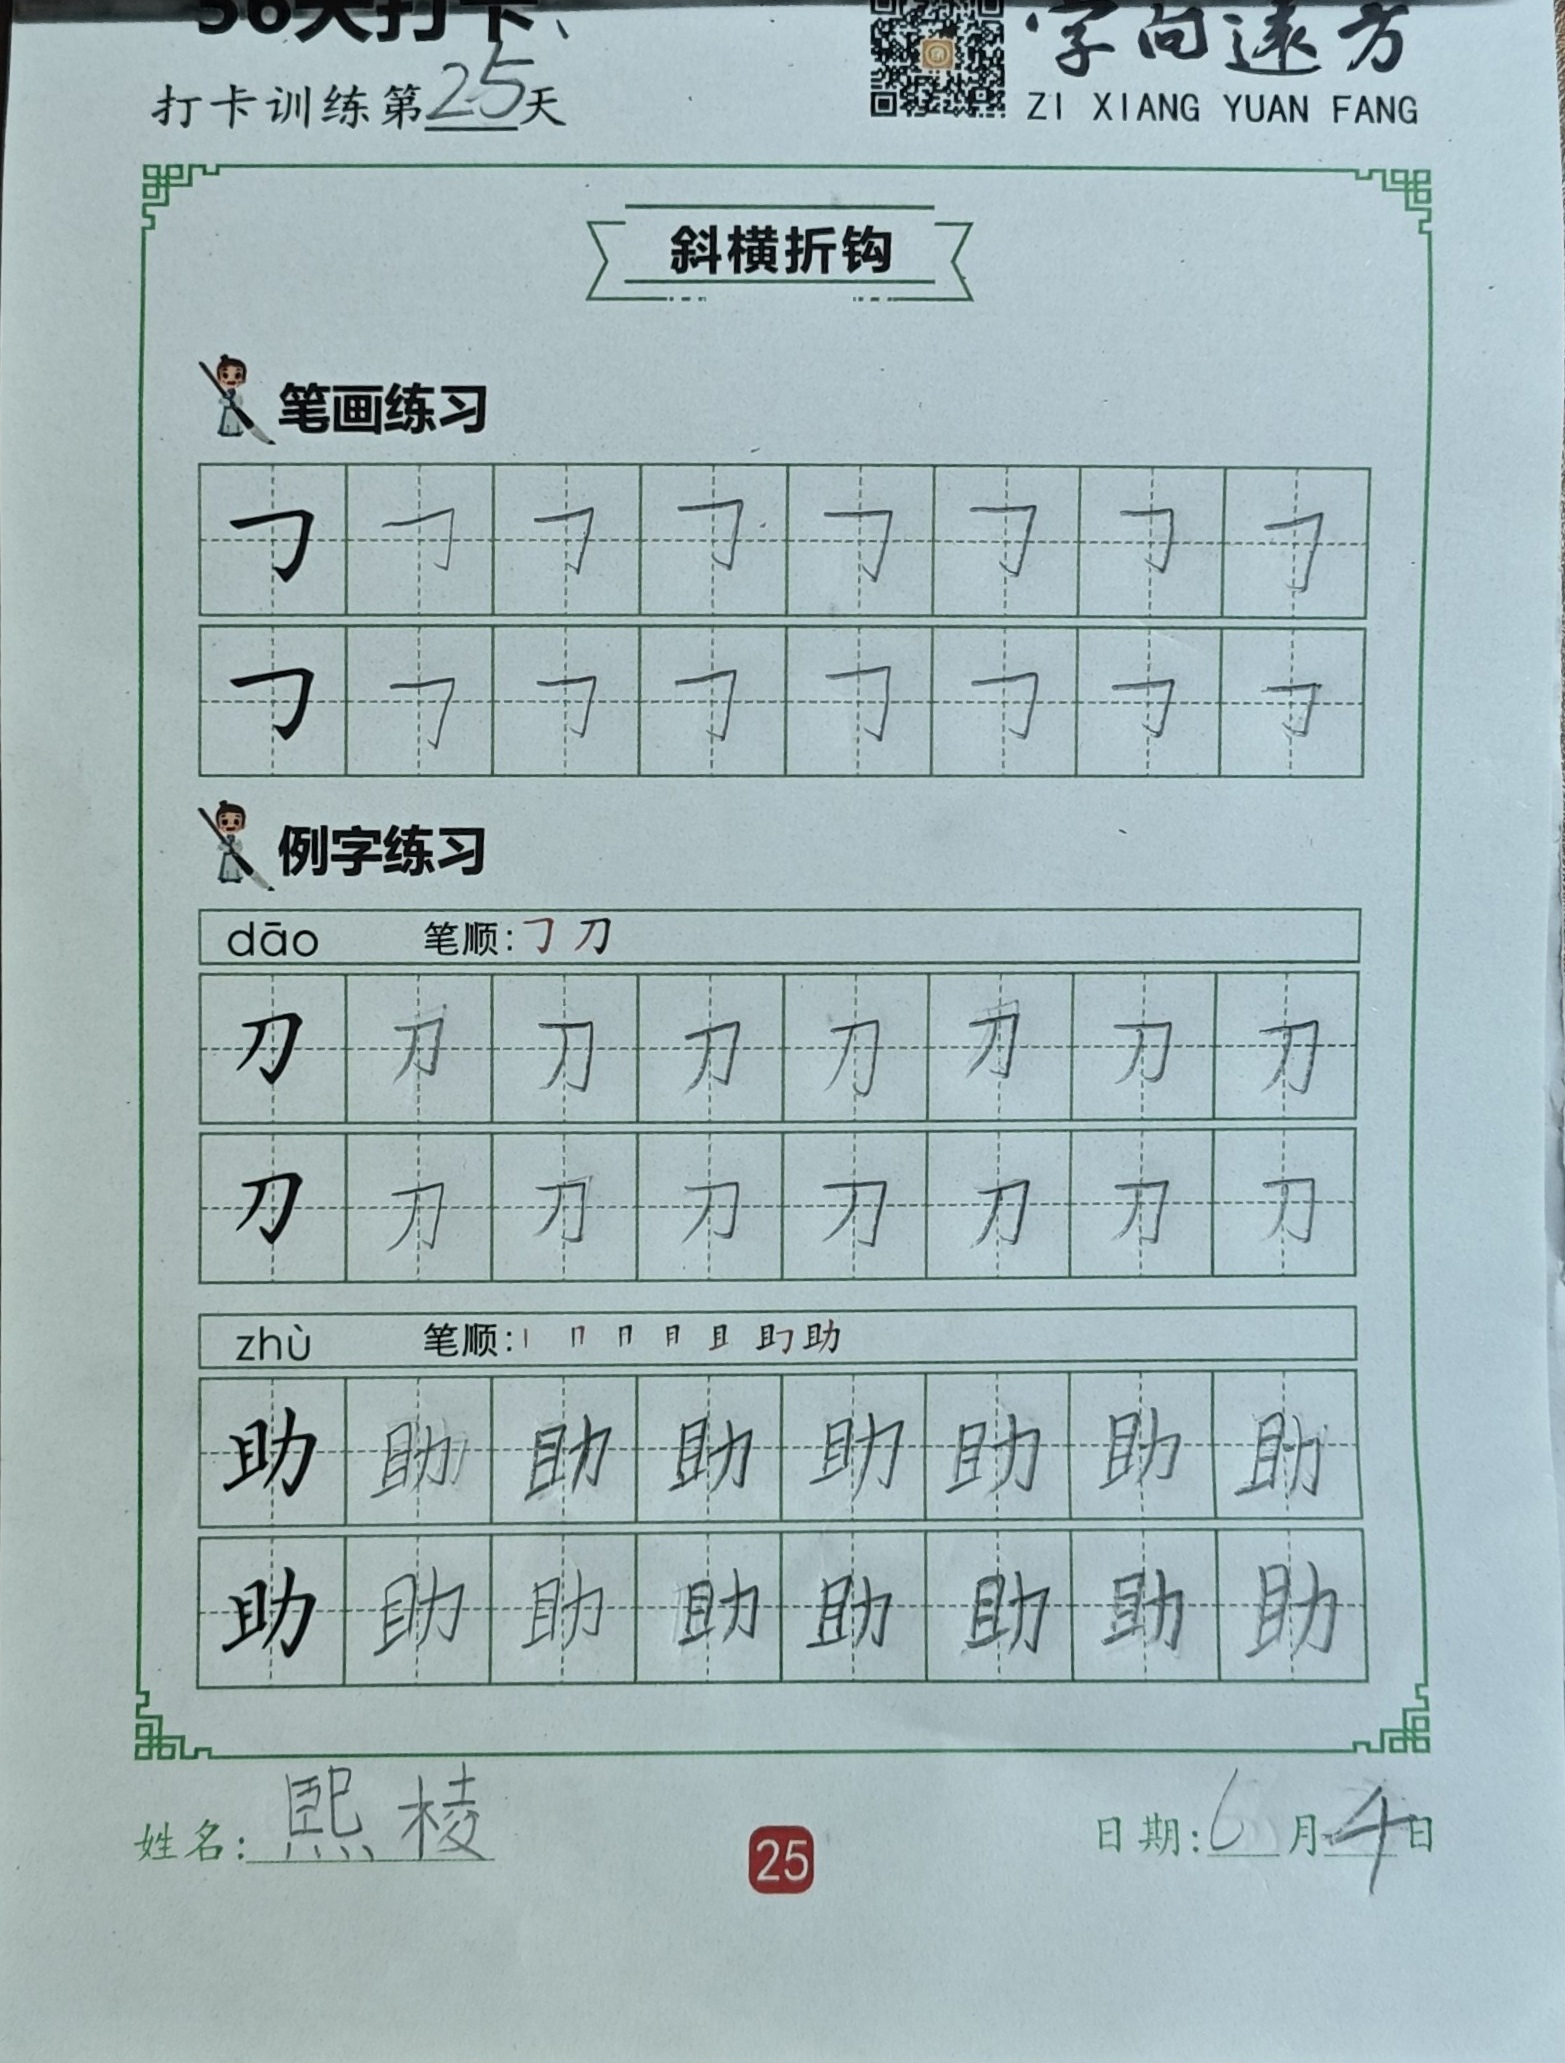 56天打卡
字向远方
打卡训练第25天
ZI XIANG YUAN FANG
斜横折钩
笔画练习
㇆ ㇆ ㇆ ㇆ ㇆ ㇆ ㇆ ㇆
㇆ ㇆ ㇆ ㇆ ㇆ ㇆ ㇆ ㇆
例字练习
dāo 笔顺:㇆ 刀
刀 刀 刀 刀 刀 刀 刀 刀
刀 刀 刀 刀 刀 刀 刀 刀
zhù 笔顺: 助
助 助 助 助 助 助 助 助
助 助 助 助 助 助 助 助
姓名:熙棱
25
日期:6月4日